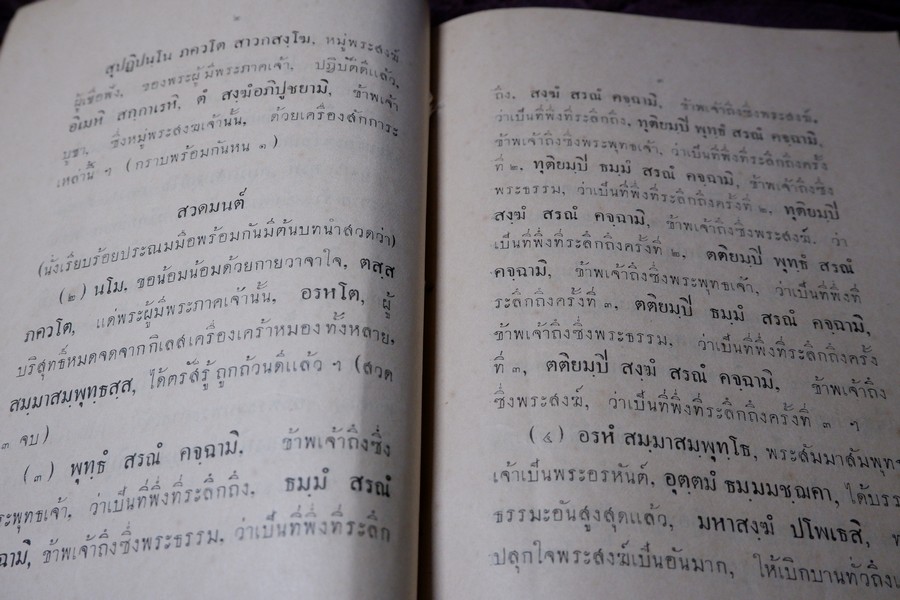 ๒
สุปฏิปนฺโน ภควโต สาวกสงฺโฆ, หมู่พระสงฆ์
ผู้เชื่อฟัง, ของพระผู้มีพระภาคเจ้า, ปฏิบัติดีแล้ว,
อิเมหิ สกฺกาเรหิ, ตํ สงฺฆํอภิปูชยามิ, ข้าพเจ้า
บูชา, ซึ่งหมู่พระสงฆเจ้านั้น, ด้วยเครื่องสักการะ
เหล่านี้ ฯ (กราบพร้อมกันหน ๑)
สวดมนต์
(นั่งเรียบร้อยประณมมือพร้อมกันมีต้นบทนำสวดว่า)
(๒) นโม. ขอน้อมน้อมด้วยกายวาจาใจ, ตสฺส
ภควโต, แด่พระผู้มีพระภาคเจ้านั้น, อรหโต, ผู้
บริสุทธิ์หมดจดจากกิเลสเครื่องเศร้าหมองทั้งหลาย,
สมฺมาสมฺพุทฺธสฺส, ได้ตรัสรู้ถูกถ้วนดีแล้ว ฯ (สวด
๓ จบ)
(๓) พุทฺธํ สรณํ คจฺฉามิ, ข้าพเจ้าถึงซึ่ง
ระพุทธเจ้า, ว่าเป็นที่พึ่งที่ระลึกถึง, ธมฺมํ สรณํ
ฉามิ, ข้าพเจ้าถึงซึ่งพระธรรม, ว่าเป็นที่พึ่งที่ระลึก
ถึง, สงฺฆํ สรณํ คจฺฉามิ, ข้าพเจ้าถึงซึ่งพระสงฆ์,
ว่าเป็นที่พึ่งที่ระลึกถึง, ทุติยมฺปี พุทฺธํ สรณํ คจฺฉามิ,
ข้าพเจ้าถึงซึ่งพระพุทธเจ้า, ว่าเป็นที่พึ่งที่ระลึกถึงครั้ง
ที่ ๒, ทุติยมฺปี ธมฺมํ สรณํ คจฺฉามิ, ข้าพเจ้าถึงซึ่ง
พระธรรม, ว่าเป็นที่พึ่งที่ระลึกถึงครั้งที่ ๒, ทุติยมฺปี
สงฺฆํ สรณํ คจฺฉามิ, ข้าพเจ้าถึงซึ่งพระสงฆ์, ว่า
เป็นที่พึ่งที่ระลึกถึงครั้งที่ ๒, ตติยมฺปี พุทฺธํ สรณํ
คจฺฉามิ, ข้าพเจ้าถึงซึ่งพระพุทธเจ้า, ว่าเป็นที่พึ่งที่
ระลึกถึงครั้งที่ ๓, ตติยมฺปี ธมฺมํ สรณํ คจฺฉามิ,
ข้าพเจ้าถึงซึ่งพระธรรม, ว่าเป็นที่พึ่งที่ระลึกถึงครั้ง
ที่ ๓, ตติยมฺปี สงฺฆํ สรณํ คจฺฉามิ, ข้าพเจ้าถึง
ซึ่งพระสงฆ์, ว่าเป็นที่พึ่งที่ระลึกถึงครั้งที่ ๓ ฯ
(๔) อรหํ สมฺมาสมฺพุทฺโธ, พระสัมมาสัมพุท
เจ้าเป็นพระอรหันต์, อุตฺตมํ ธมฺมมชฺฌคา, ได้บรร
ธรรมะอันสูงสุดแล้ว, มหาสงฺฆํ ปโพเธสิ,
ปลุกใจพระสงฆ์เป็นอันมาก, ให้เบิกบานทั่วถึง